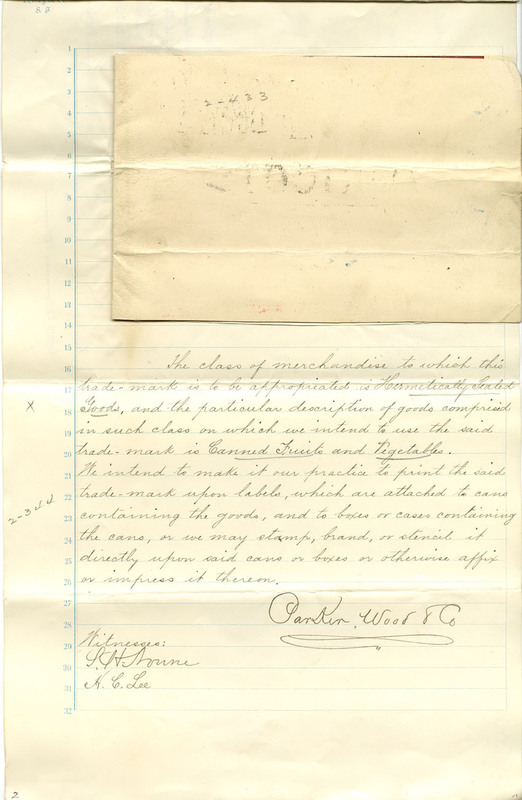 2-433
The class of merchandise to which this
trade-mark is to be appropriated is Hermetically Sealed
Goods, and the particular description of goods comprised
in such class on which we intend to use the said
trade-mark is Canned Fruits and Vegetables.
We intend to make it our practice to print the said
trade-mark upon labels, which are attached to cans
containing the goods, and to boxes or cases containing
the cans, or we may stamp, brand, or stencil it
directly upon said cans or boxes or otherwise affix
or impress it thereon.
Parker, Wood & Co
Witnesses:
S. H. Nourse
H. C. Lee
X
2-344
1
2
3
4
5
6
7
8
9
10
11
12
13
14
15
16
17
18
19
20
21
22
23
24
25
26
27
28
29
30
31
32
2